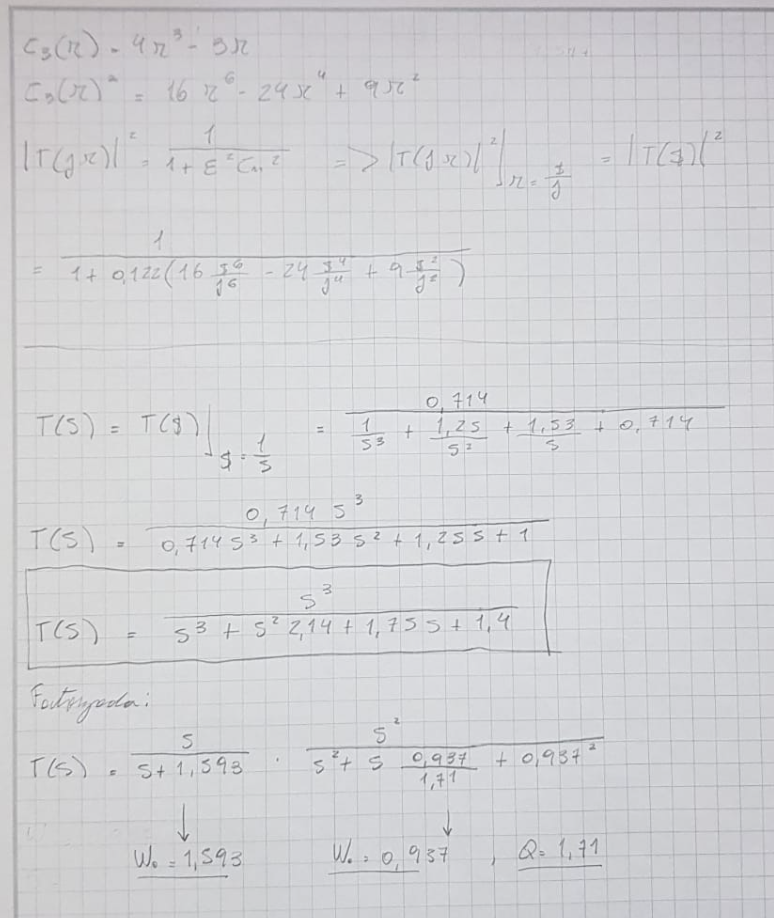 C₃(Ω) = 4Ω³ - 3Ω
C₃(Ω)² = 16 Ω⁶ - 24Ω⁴ + 9Ω²
|T(jΩ)|² = 1 / (1 + ε² Cₙ²) => |T(jΩ)|² |Ω = $/j = |T($)|²
= 1 / (1 + 0,122(16 $⁶/j⁶ - 24 $⁴/j⁴ + 9 $²/j²))
T(S) = T($) | $ = 1/S = 0,714 / (1/S³ + 1,25/S² + 1,53/S + 0,714)
T(S) = 0,714 S³ / (0,714 S³ + 1,53 S² + 1,25 S + 1)
T(S) = S³ / (S³ + S² 2,14 + 1,75 S + 1,4)
Factorizada:
T(S) = S / (S + 1,593) · S² / (S² + S 0,937/1,71 + 0,937²)
↓ ↓
W₀ = 1,593 W₀ = 0,937 , Q = 1,71